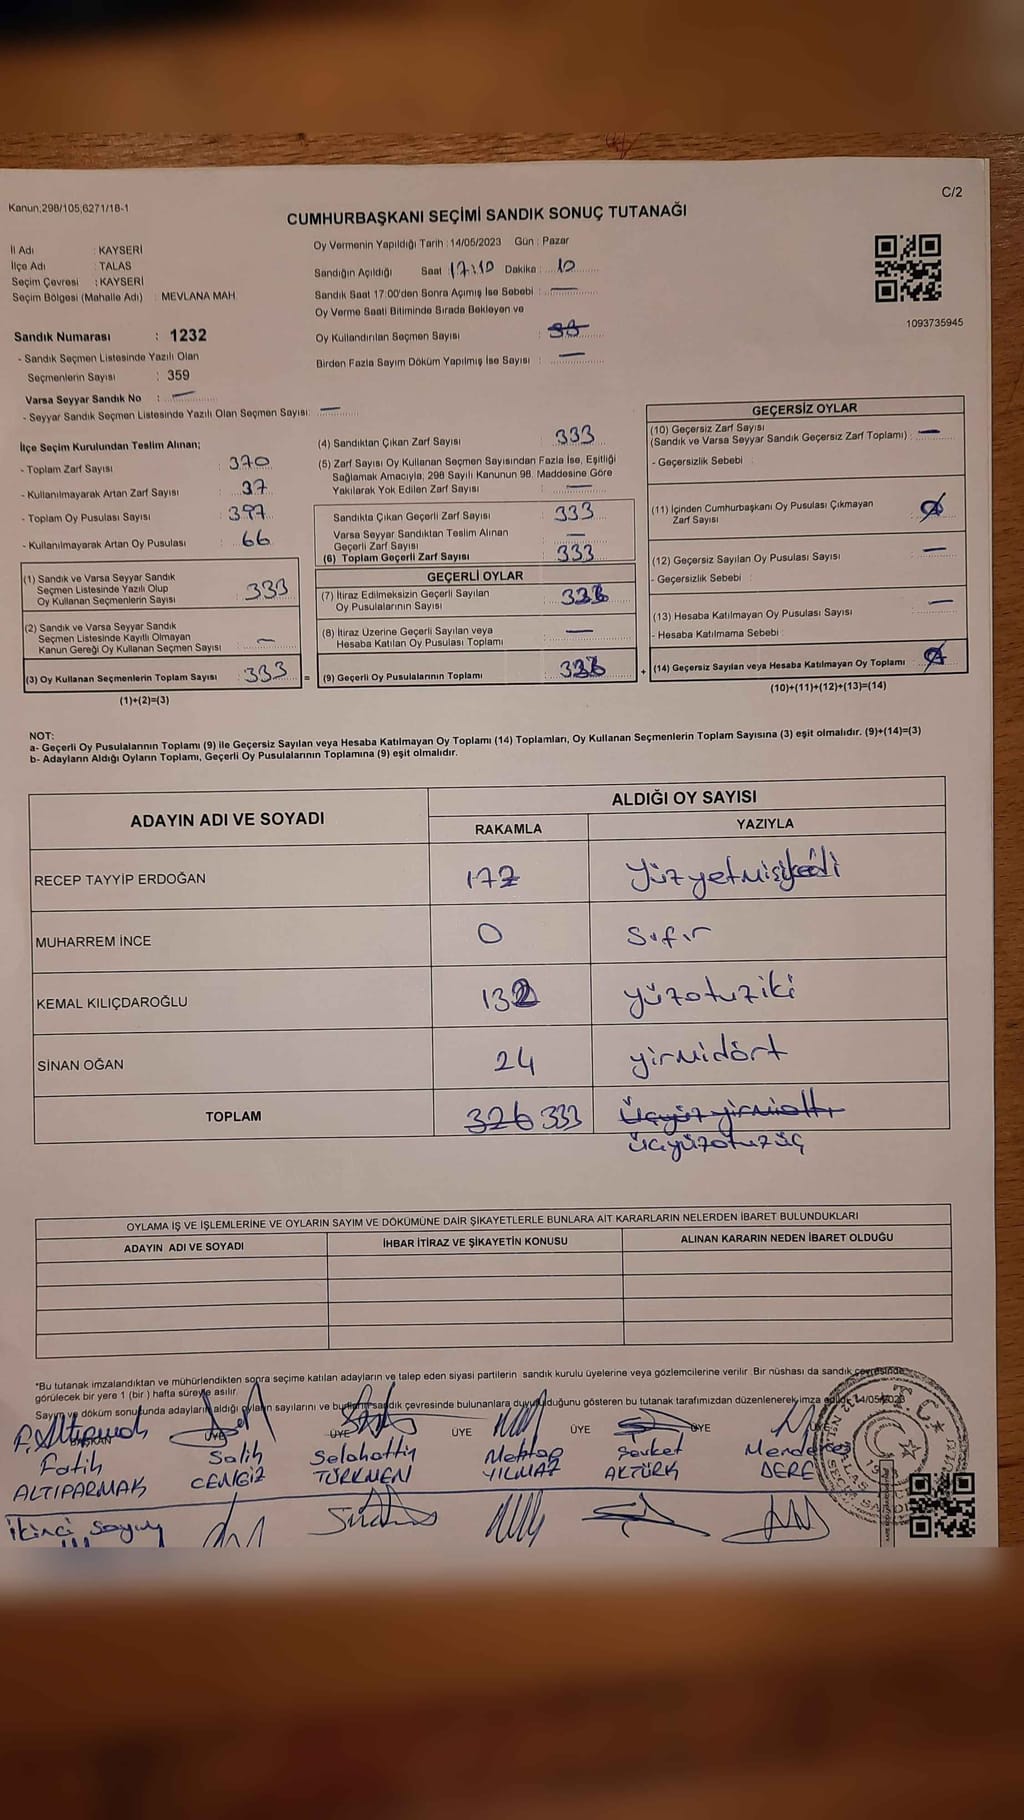 C/2
Kanun;298/105;6271/18-1
CUMHURBAŞKANI SEÇİMİ SANDIK SONUÇ TUTANAĞI
Oy Vermenin Yapıldığı Tarih : 14/05/2023 Gün : Pazar
İl Adı : KAYSERİ
İlçe Adı : TALAS
Seçim Çevresi : KAYSERİ
Seçim Bölgesi (Mahalle Adı) : MEVLANA MAH
Sandığın Açıldığı Saat 17:10 Dakika : 10
Sandık Saat 17:00'den Sonra Açımış İse Sebebi : —
Oy Verme Saati Bitiminde Sırada Bekleyen ve
Oy Kullandırılan Seçmen Sayısı :
Birden Fazla Sayım Döküm Yapılmış İse Sayısı : —
1093735945
Sandık Numarası : 1232
- Sandık Seçmen Listesinde Yazılı Olan
Seçmenlerin Sayısı : 359
Varsa Seyyar Sandık No : —
- Seyyar Sandık Seçmen Listesinde Yazılı Olan Seçmen Sayısı: —
İlçe Seçim Kurulundan Teslim Alınan;
- Toplam Zarf Sayısı : 370
- Kullanılmayarak Artan Zarf Sayısı : 37
- Toplam Oy Pusulası Sayısı : 397
- Kullanılmayarak Artan Oy Pusulası : 66
(1) Sandık ve Varsa Seyyar Sandık
Seçmen Listesinde Yazılı Olup
Oy Kullanan Seçmenlerin Sayısı : 333
(2) Sandık ve Varsa Seyyar Sandık
Seçmen Listesinde Kayıtlı Olmayan
Kanun Gereği Oy Kullanan Seçmen Sayısı : —
(3) Oy Kullanan Seçmenlerin Toplam Sayısı : 333
(1)+(2)=(3)
(4) Sandıktan Çıkan Zarf Sayısı : 333
(5) Zarf Sayısı Oy Kullanan Seçmen Sayısından Fazla İse, Eşitliği
Sağlamak Amacıyla, 298 Sayılı Kanunun 98. Maddesine Göre
Yakılarak Yok Edilen Zarf Sayısı : —
Sandıkta Çıkan Geçerli Zarf Sayısı : 333
Varsa Seyyar Sandıktan Teslim Alınan
Geçerli Zarf Sayısı : —
(6) Toplam Geçerli Zarf Sayısı : 333
GEÇERLİ OYLAR
(7) İtiraz Edilmeksizin Geçerli Sayılan
Oy Pusulalarının Sayısı :
(8) İtiraz Üzerine Geçerli Sayılan veya
Hesaba Katılan Oy Pusulası Toplamı : —
=
(9) Geçerli Oy Pusulalarının Toplamı :
+
GEÇERSİZ OYLAR
(10) Geçersiz Zarf Sayısı
(Sandık ve Varsa Seyyar Sandık Geçersiz Zarf Toplamı) : —
- Geçersizlik Sebebi :
(11) İçinden Cumhurbaşkanı Oy Pusulası Çıkmayan
Zarf Sayısı :
(12) Geçersiz Sayılan Oy Pusulası Sayısı : —
- Geçersizlik Sebebi :
(13) Hesaba Katılmayan Oy Pusulası Sayısı : —
- Hesaba Katılmama Sebebi :
(14) Geçersiz Sayılan veya Hesaba Katılmayan Oy Toplamı :
(10)+(11)+(12)+(13)=(14)
NOT:
a- Geçerli Oy Pusulalarının Toplamı (9) ile Geçersiz Sayılan veya Hesaba Katılmayan Oy Toplamı (14) Toplamları, Oy Kullanan Seçmenlerin Toplam Sayısına (3) eşit olmalıdır. (9)+(14)=(3)
b- Adayların Aldığı Oyların Toplamı, Geçerli Oy Pusulalarının Toplamına (9) eşit olmalıdır.
ADAYIN ADI VE SOYADI ALDIĞI OY SAYISI
RAKAMLA YAZIYLA
RECEP TAYYİP ERDOĞAN
MUHARREM İNCE 0 Sıfır
KEMAL KILIÇDAROĞLU 132 yüzotuziki
SİNAN OĞAN 24 yirmidört
TOPLAM 326 333 Üçyüzyirmialtı
üçyüzotuzüç
OYLAMA İŞ VE İŞLEMLERİNE VE OYLARIN SAYIM VE DÖKÜMÜNE DAİR ŞİKAYETLERLE BUNLARA AİT KARARLARIN NELERDEN İBARET BULUNDUKLARI
ADAYIN ADI VE SOYADI İHBAR İTİRAZ VE ŞİKAYETİN KONUSU ALINAN KARARIN NEDEN İBARET OLDUĞU
*Bu tutanak imzalandıktan ve mühürlendikten sonra seçime katılan adayların ve talep eden siyasi partilerin sandık kurulu üyelerine veya gözlemcilerine verilir. Bir nüshası da sandık çevresinde
görülecek bir yere 1 (bir) hafta süreyle asılır.
Sayım ve döküm sonucunda adayların aldığı oyların sayılarını ve bunların sandık çevresinde bulunanlara duyurulduğunu gösteren bu tutanak tarafımızdan düzenlenerek imza edildi. 14/05/2023
BAŞKAN ÜYE ÜYE ÜYE ÜYE ÜYE
Fatih Salih Selahattin Mehtap Şevket Menderes
ALTIPARMAK CENGİZ TÜRKMEN YILMAZ AKTÜRK DERE
İkinci Sayım